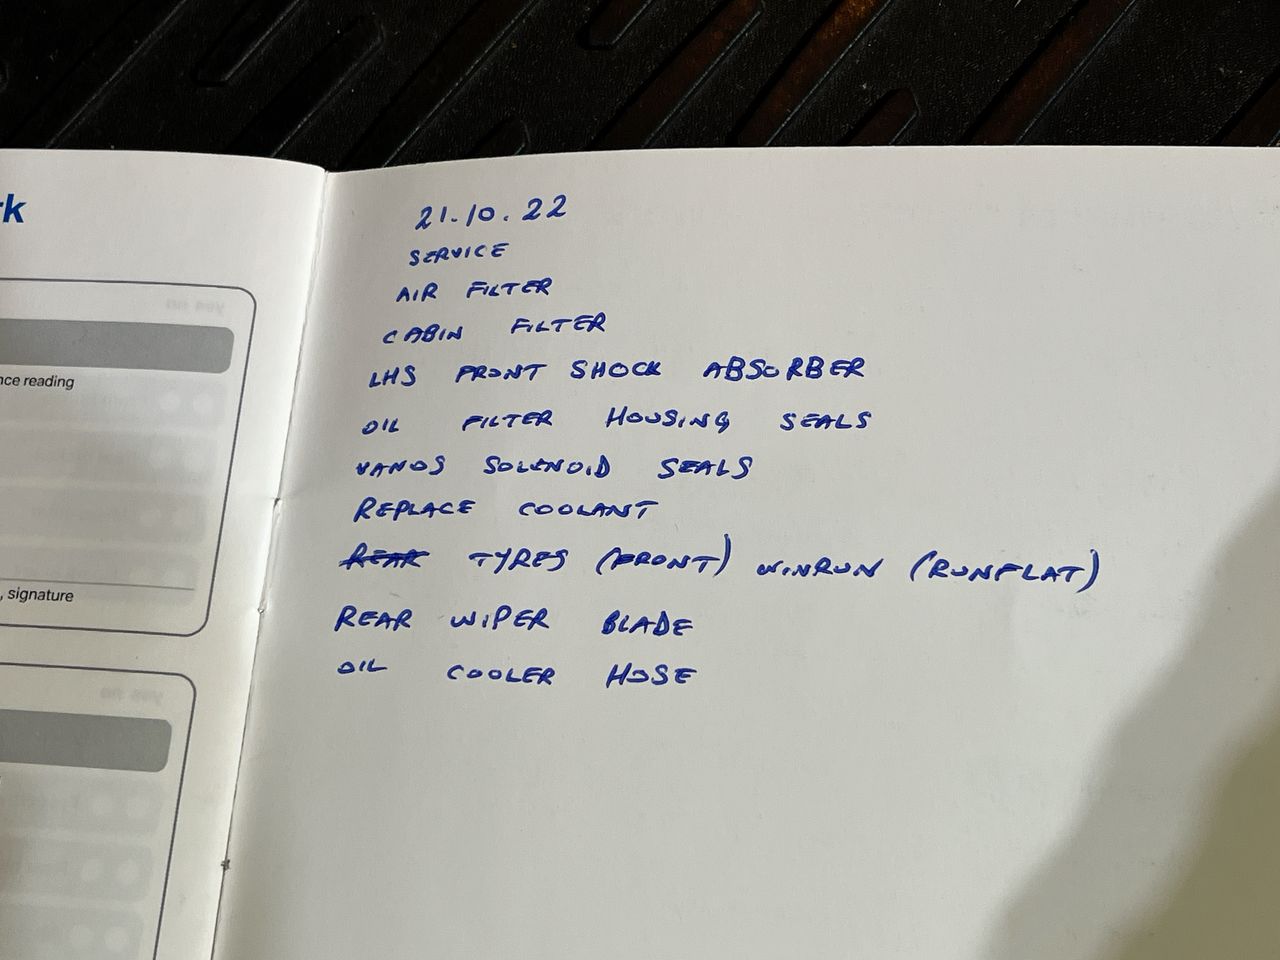 rk
nce reading
, signature
yes no
yes no
21.10.22
SERVICE
AIR FILTER
CABIN FILTER
LHS FRONT SHOCK ABSORBER
OIL FILTER HOUSING SEALS
VANOS SOLENOID SEALS
REPLACE COOLANT
REAR TYRES (FRONT) WINRUN (RUNFLAT)
REAR WIPER BLADE
OIL COOLER HOSE